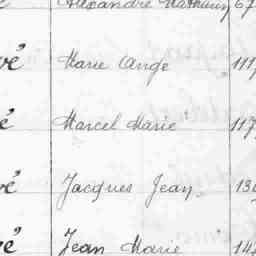 Alexandre Mathurin 67
vé Marie Ange 111
é Marcel Marie 117
vé Jacques Jean 13
vé Jean Marie 14